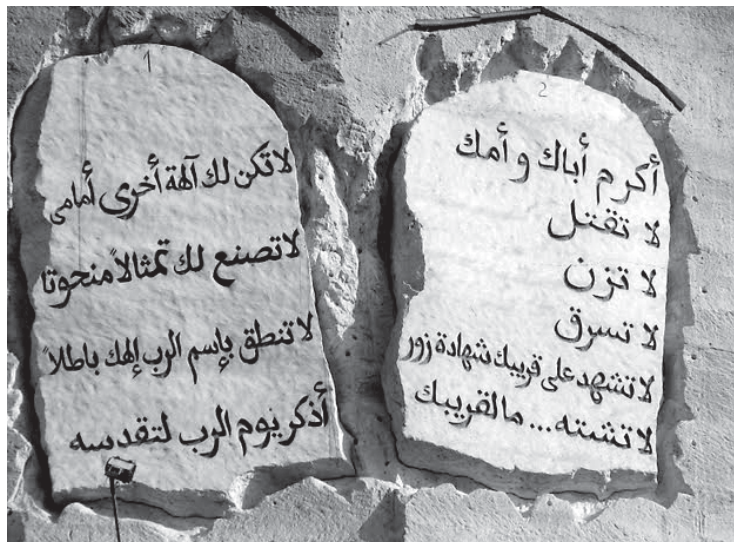 1
لا تكن لك آلهة أخرى أمامى
لا تصنع لك تمثالاً منحوتا
لا تنطق بإسم الرب إلهك باطلاً
أذكر يوم الرب لتقدسه
2
أكرم أباك و أمك
لا تقتل
لا تزن
لا تسرق
لا تشهد على قريبك شهادة زور
لا تشته... ما لقريبك